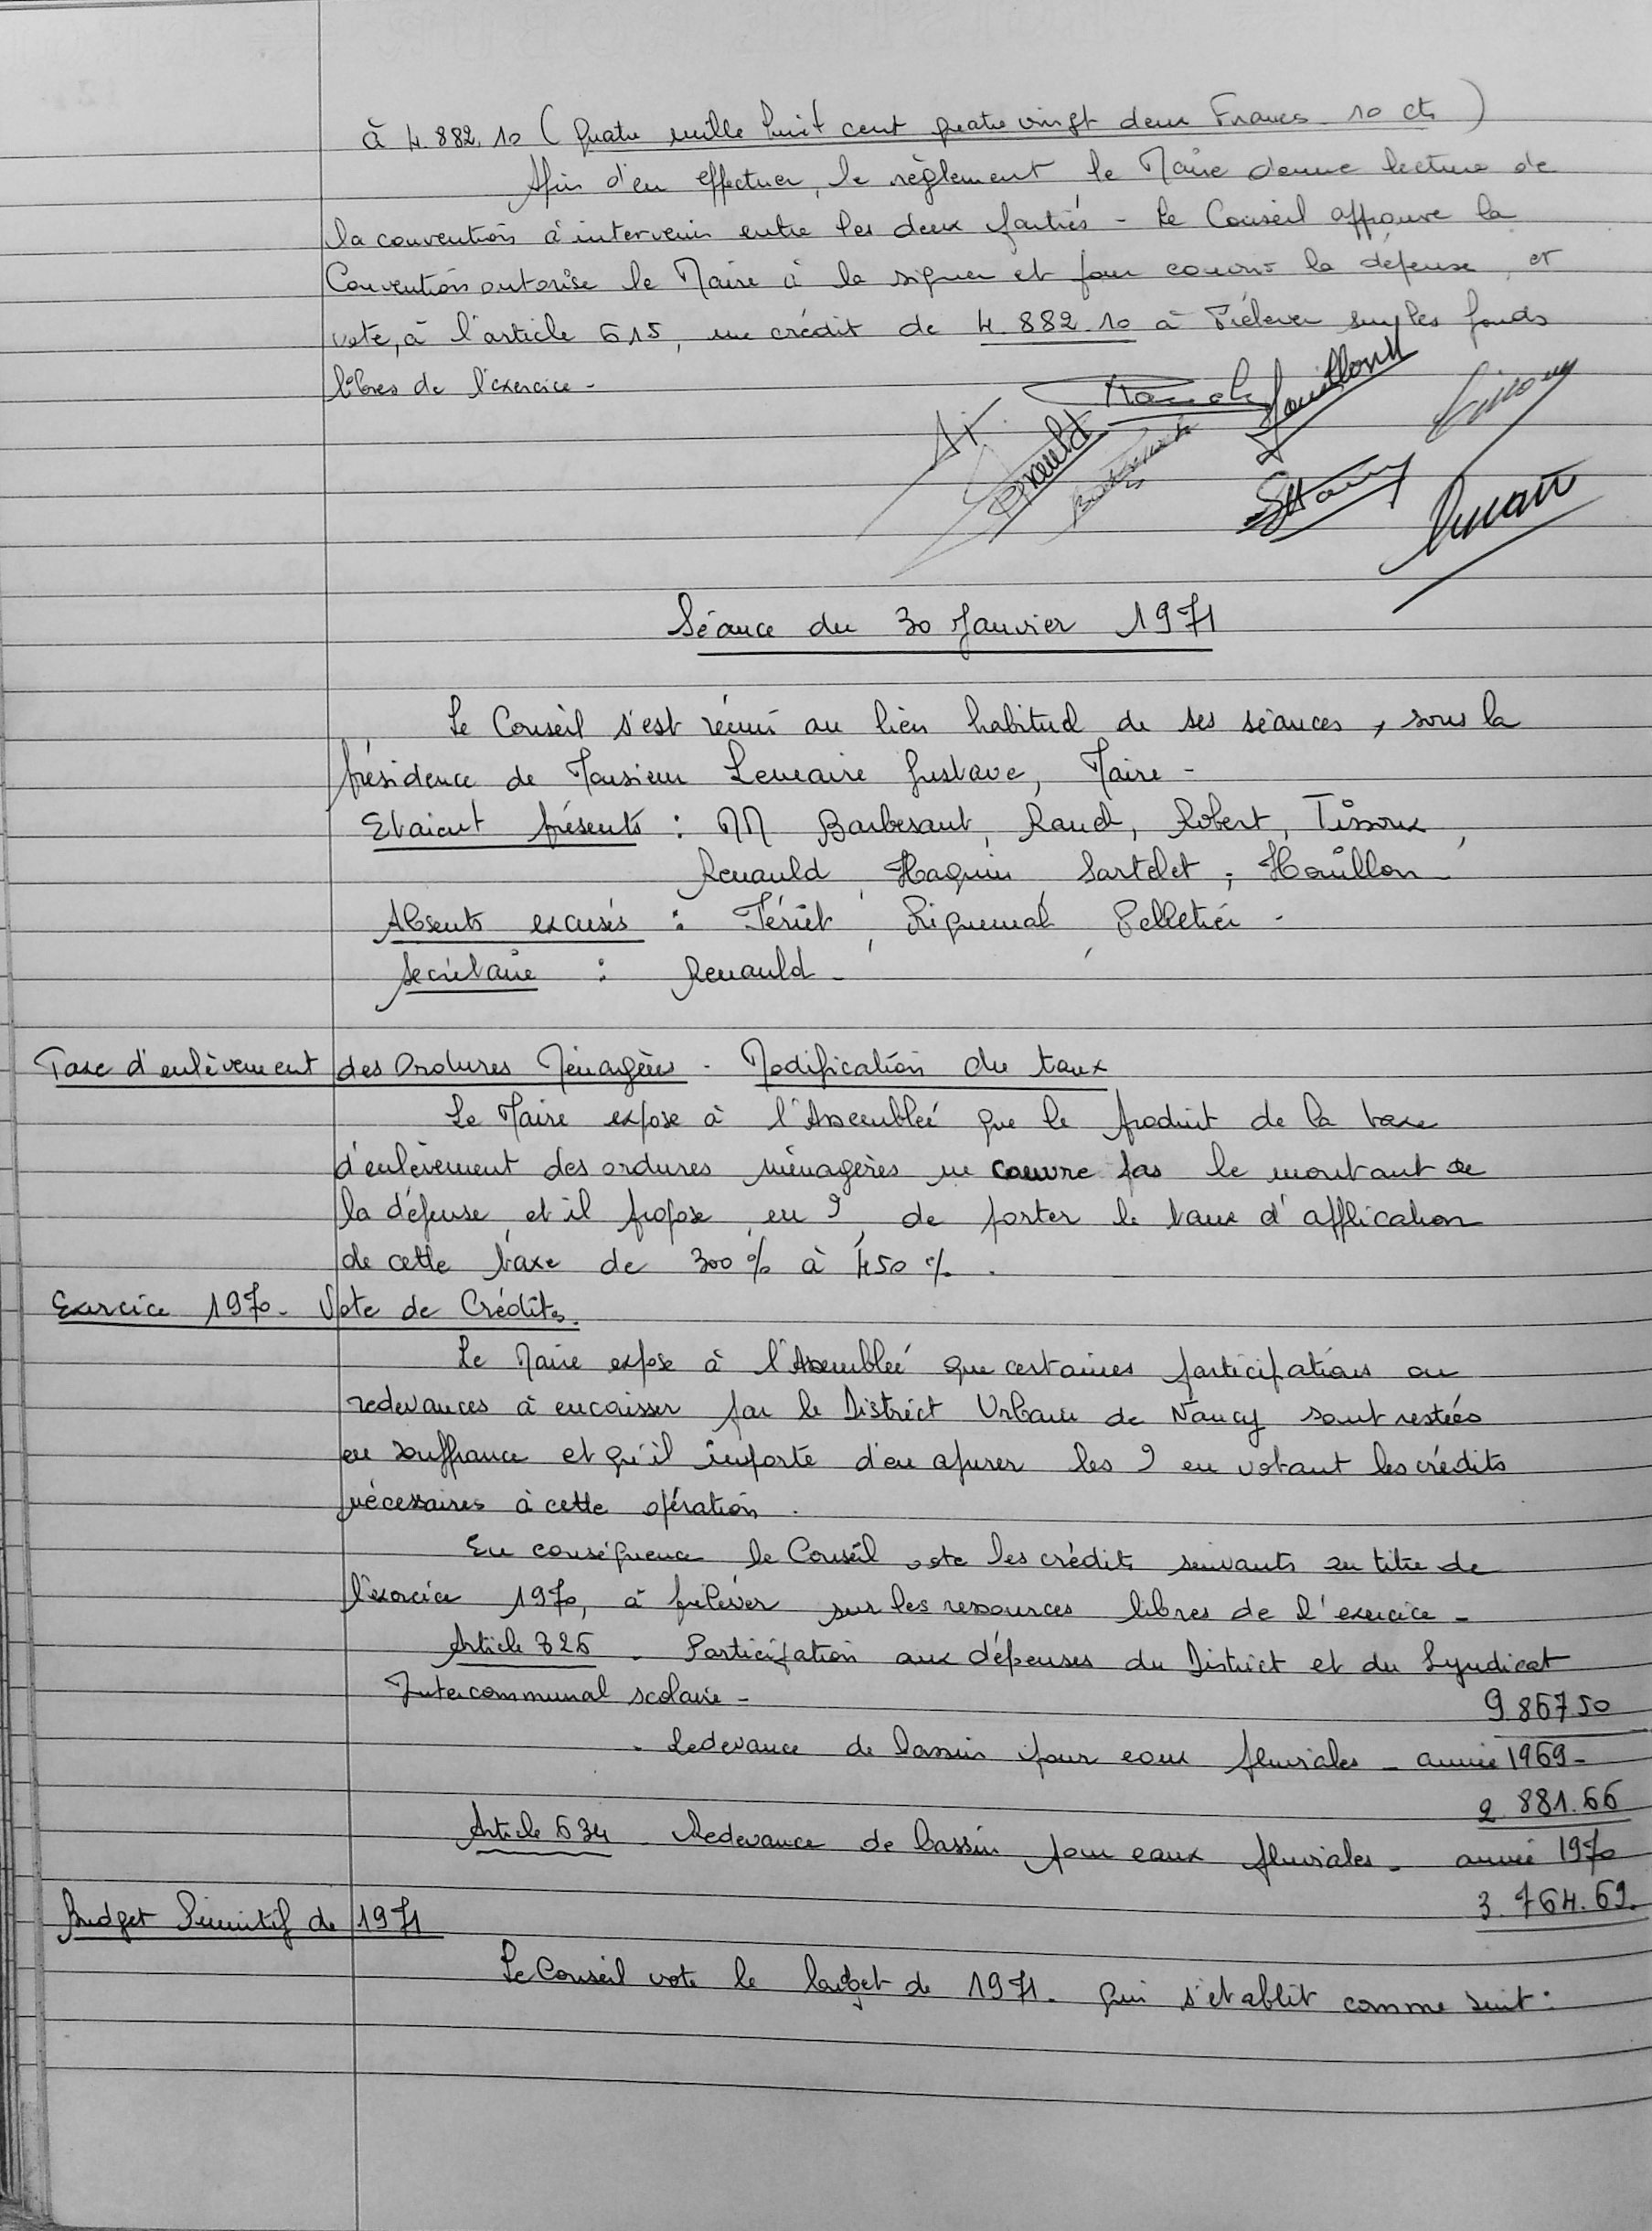 à 4.882,10 (quatre mille huit cent quatre vingt deux Francs 10 cts)
Afin d'en effectuer, le règlement le Maire donne lecture de
la convention à intervenir entre les deux parties - Le Conseil approuve la
Convention autorise le Maire à la signer et pour couvrir la dépense, et
vote, à l'article 615, un crédit de 4.882.10 à Prélever sur les fonds
libres de l'exercice -
Renauld
Houillon
Séance du 30 Janvier 1971
Le Conseil s'est réuni au lieu habituel de ses séances, sous la
présidence de Monsieur Lemaire Gustave, Maire -
Etaient présents : MM Barbesant, Rauch, Robert, Tissoux,
Renauld, Haquin, Sartelet, Houillon -
Absents excusés : Fériet, Riguemal, Pelletier -
Secrétaire : Renauld -
Taxe d'enlèvement des Ordures Ménagères - Modification du taux
Le Maire expose à l'Assemblée que le produit de la taxe
d'enlèvement des ordures ménagères ne couvre pas le montant de
la dépense, et il propose, en 9, de porter le taux d'application
de cette taxe de 300 % à 450 %.
Exercice 1970 - Vote de Crédits.
Le Maire expose à l'Assemblée que certaines participations ou
redevances à encaisser par le District Urbain de Nancy sont restées
en souffrance et qu'il importe d'en apurer les 9 en votant les crédits
nécessaires à cette opération.
En conséquence le Conseil vote les crédits suivants au titre de
l'exercice 1970, à prélever sur les ressources libres de l'exercice -
Article 826 - Participation aux dépenses du District et du Syndicat
Intercommunal scolaire - 9 867 50
- Redevance de bassin pour eaux pluviales - année 1969 -
2 881.66
Article 634 - Redevance de bassin pour eaux pluviales - année 1970
3.764.69.
Budget Primitif de 1971
Le Conseil vote le budget de 1971 - qui s'établit comme suit :